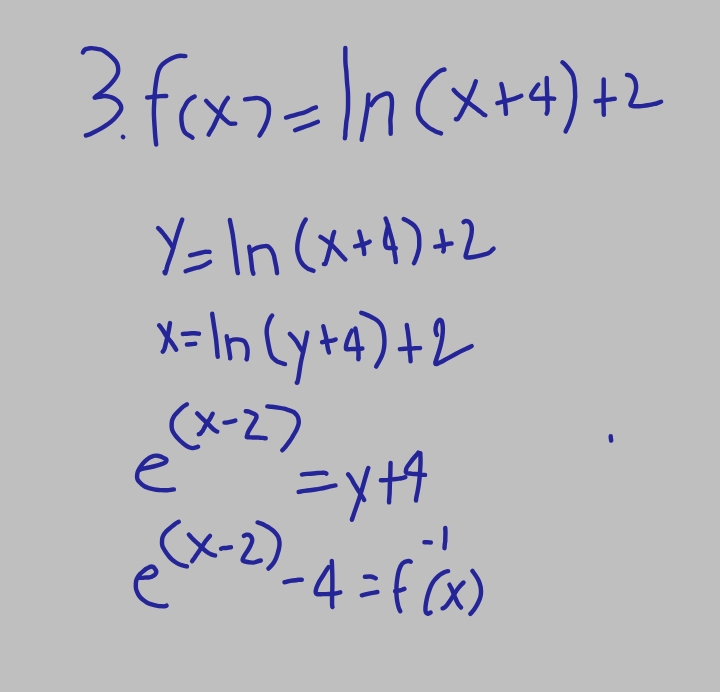 3. f(x) = ln(x+4)+2
y = ln(x+4)+2
x = ln(y+4)+2
e^(x-2) = y+4
e^(x-2) - 4 = f^-1(x)